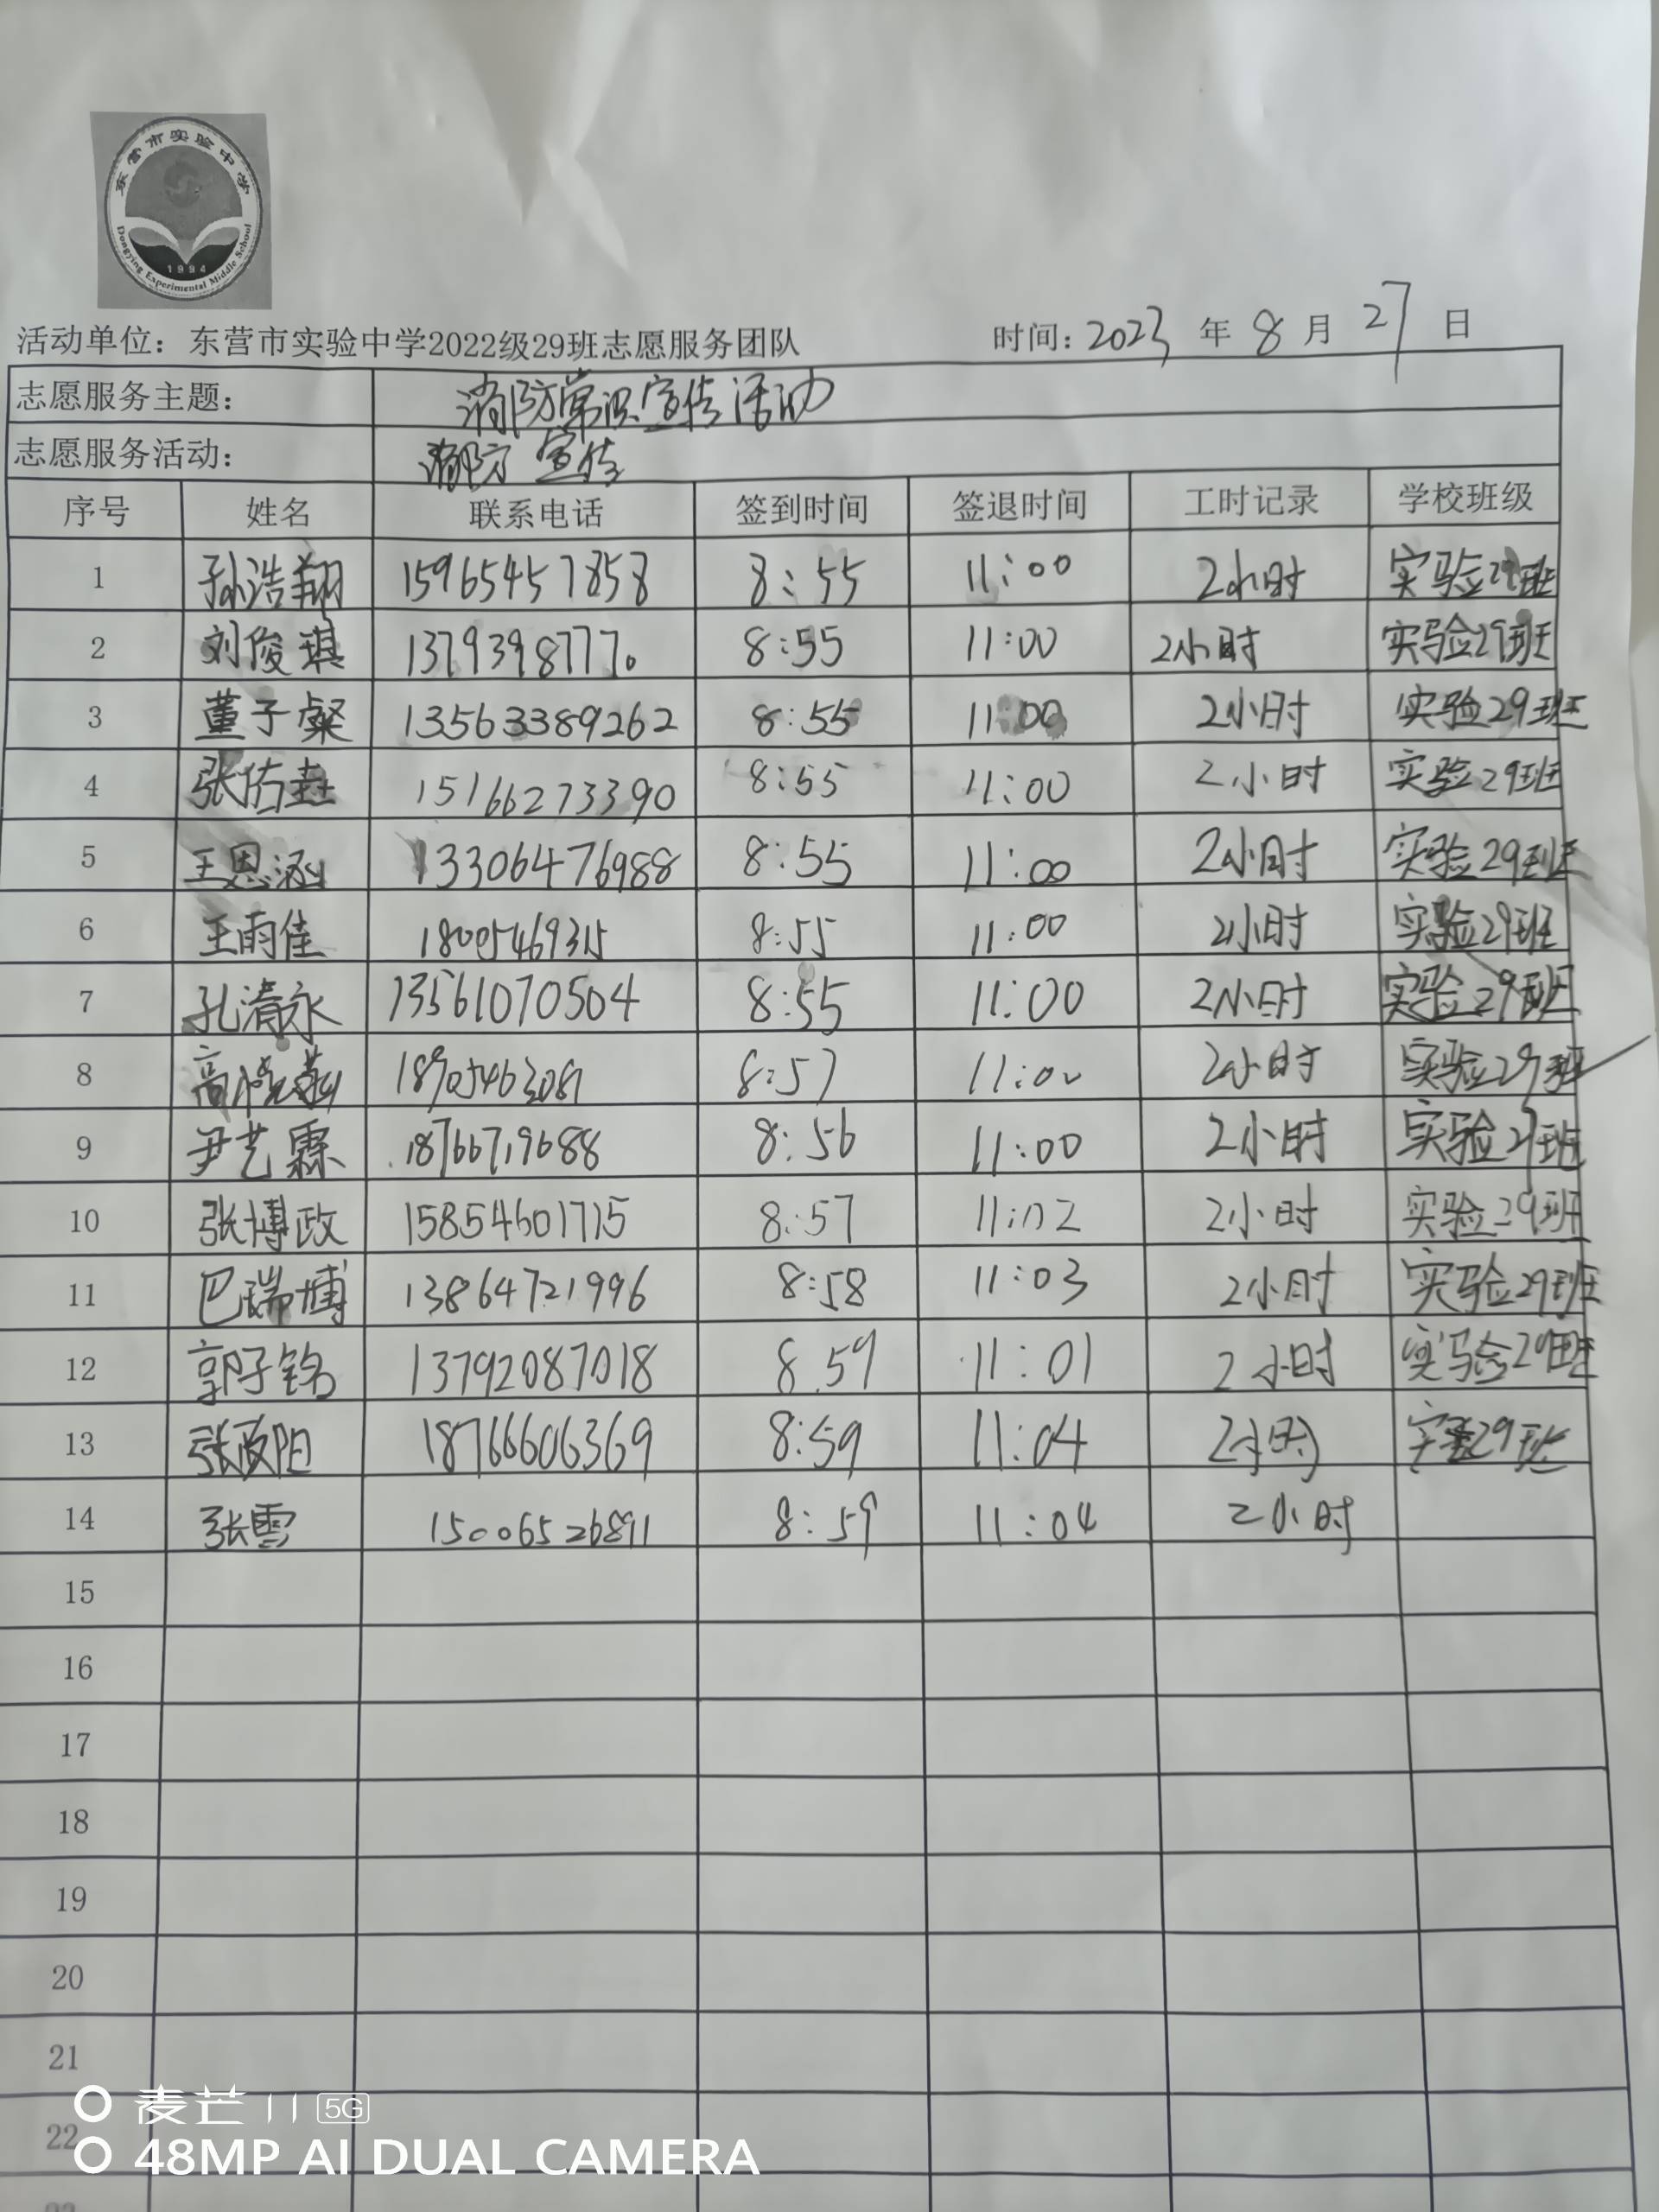 东营市实验中学
Dongying Experimental Middle School
1994
活动单位：东营市实验中学2022级29班志愿服务团队 时间：2023 年 8 月 27 日
志愿服务主题： 消防常识宣传活动
志愿服务活动： 消防宣传
序号 姓名 联系电话 签到时间 签退时间 工时记录 学校班级
1 孙浩翔 15965457858 8:55 11:00 2小时 实验29班
2 刘俊琪 13793987770 8:55 11:00 2小时 实验29班
3 董子粲 13563389262 8:55 11:00 2小时 实验29班
4 张佑 15166273390 8:55 11:00 2小时 实验29班
5 王恩涵 13306476988 8:55 11:00 2小时 实验29班
6 王雨佳 18005469315 8:55 11:00 2小时 实验29班
7 孔清永 13561070504 8:55 11:00 2小时 实验29班
8 高 18905463081 8:57 11:00 2小时 实验29班
9 尹艺霖 18766719688 8:56 11:00 2小时 实验29班
10 张博政 15854601715 8:57 11:02 2小时 实验29班
11 巴瑞博 13864721996 8:58 11:03 2小时 实验29班
12 郭子铭 13792087018 8.59 11:01 2小时 实验29班
13 张 阳 18766606369 8:59 11:04 2小时 实验29班
14 张雪 15006526891 8:59 11:04 2小时
15
16
17
18
19
20
21
22
麦芒11 5G
48MP AI DUAL CAMERA